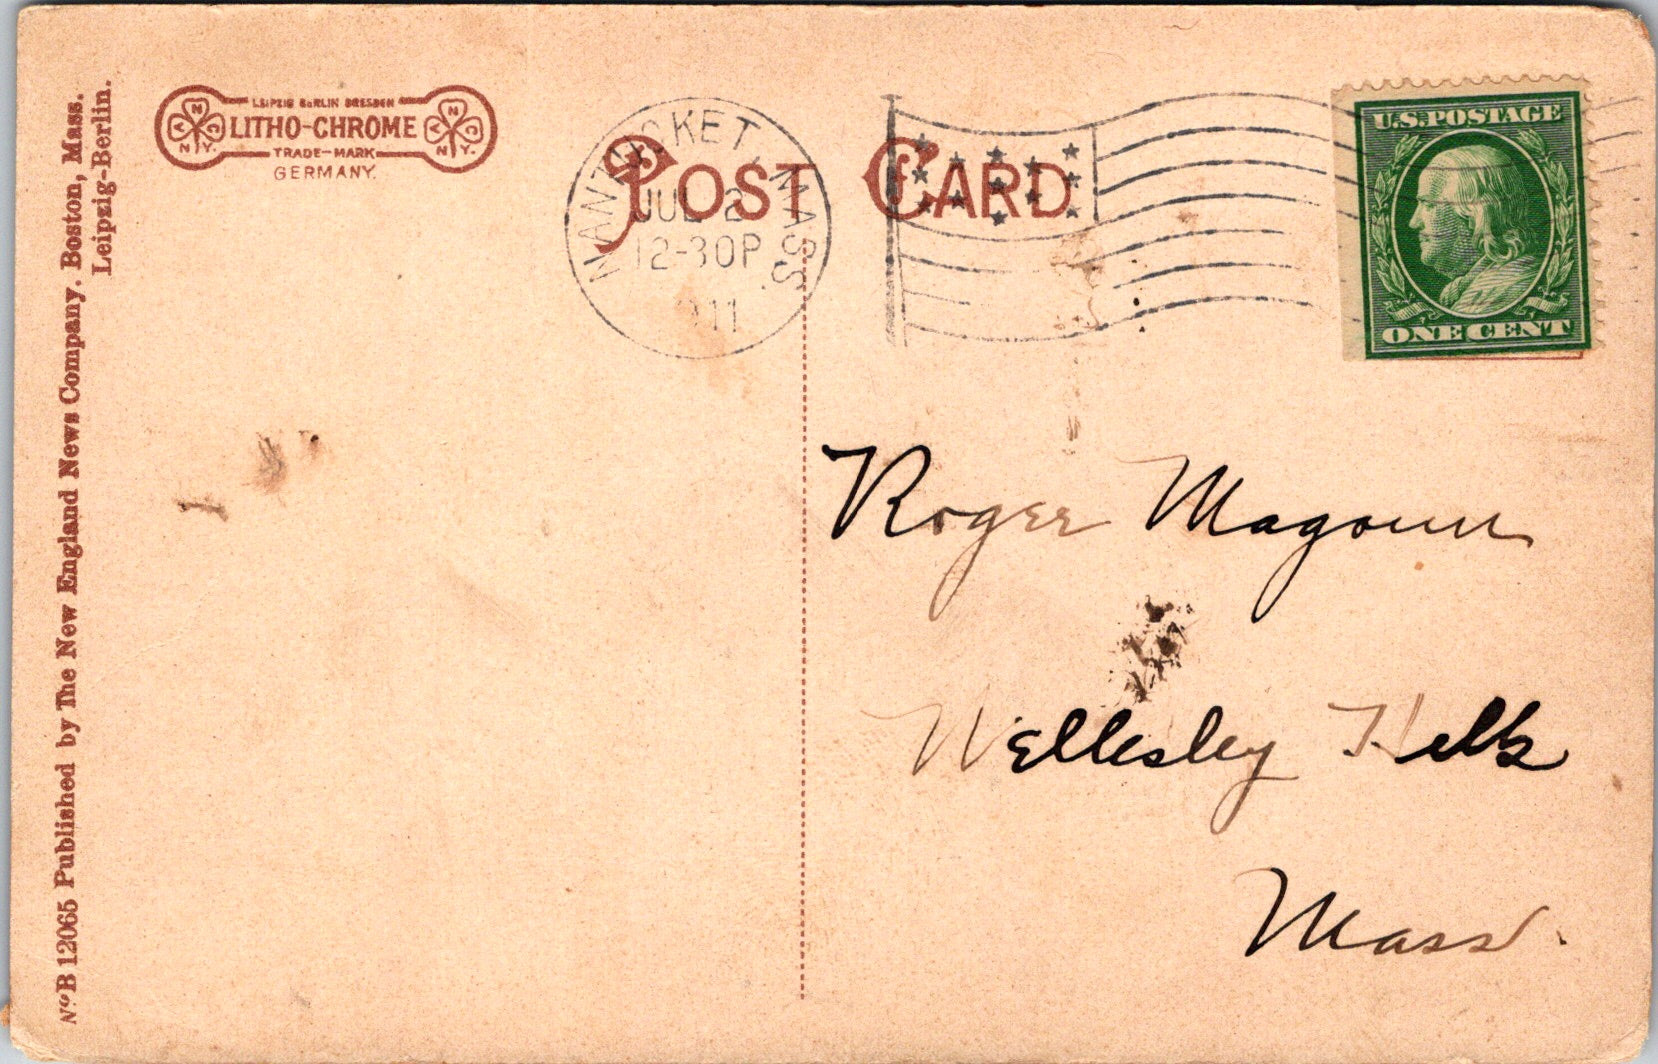 Nº B 12065 Published by The New England News Company. Boston, Mass.
Leipzig-Berlin.
LEIPZIG BERLIN DRESDEN
LITHO-CHROME
TRADE-MARK
GERMANY.
A N C
N.Y.
A N C
N.Y.
POST CARD
NANTUCKET, MASS.
JUL 2
12-30P
1911
U.S. POSTAGE
ONE CENT
Roger Magoun
Wellesley Hills
Mass.